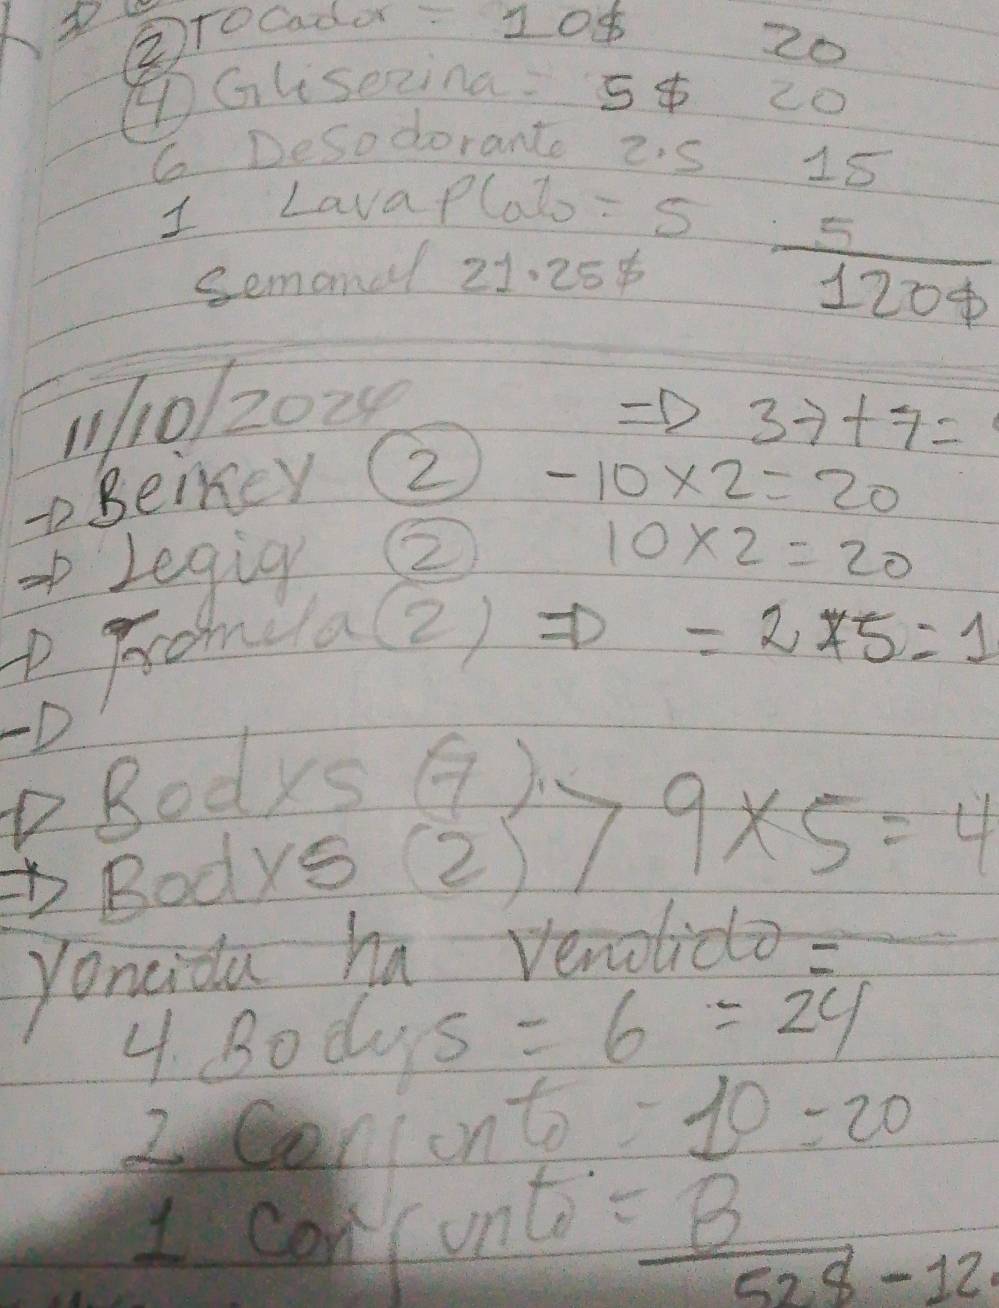 ② Tocador = 10$ 20
④ Gliserina = 5$ 20
6 Desodorante 2.5 15
1 Lava Plato = 5 5
Semanal 21.25$ 120$
11/10/2024 => 37+7=
-> Beikey ② -10x2=20
=> Legig ② 10x2=20
-> Fromela (2) => = 2x5=1
->
-> Bodys (7)
=> Bodys (2) > 9x5=4
Yoneida ha vendido =
4 Bodys = 6 = 24
2 Conjunto = 10 = 20
1 Conjunto = 8
52$ -12